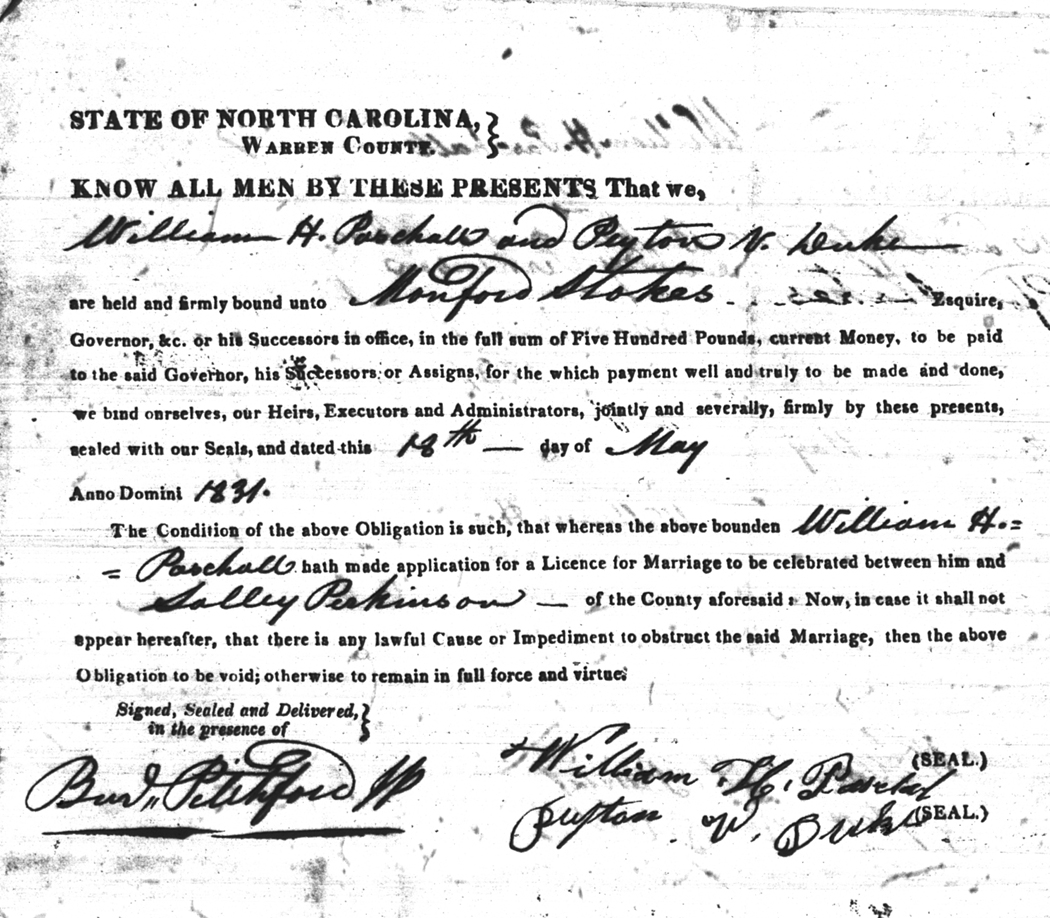 STATE OF NORTH CAROLINA,
WARREN COUNTY.
KNOW ALL MEN BY THESE PRESENTS That we,
William H. Paschall and Peyton V. Duke
are held and firmly bound unto Monford Stokes Esquire,
Governor, &c. or his Successors in office, in the full sum of Five Hundred Pounds, current Money, to be paid
to the said Governor, his Successors or Assigns, for the which payment well and truly to be made and done,
we bind ourselves, our Heirs, Executors and Administrators, jointly and severally, firmly by these presents,
sealed with our Seals, and dated this 18th — day of May
Anno Domini 1831.
The Condition of the above Obligation is such, that whereas the above bounden William H.=
= Paschall hath made application for a Licence for Marriage to be celebrated between him and
Salley Perkinson — of the County aforesaid: Now, in case it shall not
appear hereafter, that there is any lawful Cause or Impediment to obstruct the said Marriage, then the above
Obligation to be void; otherwise to remain in full force and virtue.
Signed, Sealed and Delivered,
in the presence of
William H. Paschal (SEAL.)
Pitchford JP
Peyton V. Duke (SEAL.)